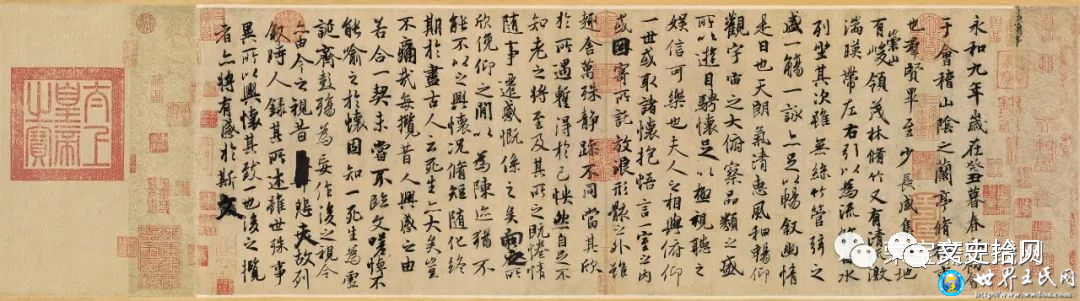 永和九年歲在癸丑暮春之初會
于會稽山陰之蘭亭脩事
也羣賢畢至少長咸集地
有崇山峻領茂林脩竹又有清激
湍暎帶左右引以為流水
列坐其次雖無絲竹管弦之
盛一觴一詠亦足以暢敘幽情
是日也天朗氣清惠風和暢仰
觀宇宙之大俯察品類之盛
所以遊目騁懷足以極視聽之
娛信可樂也夫人之相與俯仰
一世或取諸懷抱悟言一室之內
或因寄所託放浪形骸之外雖
趣舍萬殊靜躁不同當其欣
於所遇暫得於己怏然自足不
知老之將至及其所之既惓情
隨事遷感慨係之矣向之所
欣俛仰之間以為陳迹猶不
能不以之興懷況脩短隨化終
期於盡古人云死生亦大矣豈
不痛哉每攬昔人興感之由
若合一契未嘗不臨文嗟悼不
能喻之於懷固知一死生為虛
誕齊彭殤為妄作後之視今
亦由今之視昔悲夫故列
敘時人錄其所述雖世殊事
異所以興懷其致一也後之攬
者亦將有感於斯文
太上皇帝之寶
文史拾网
世界王氏网